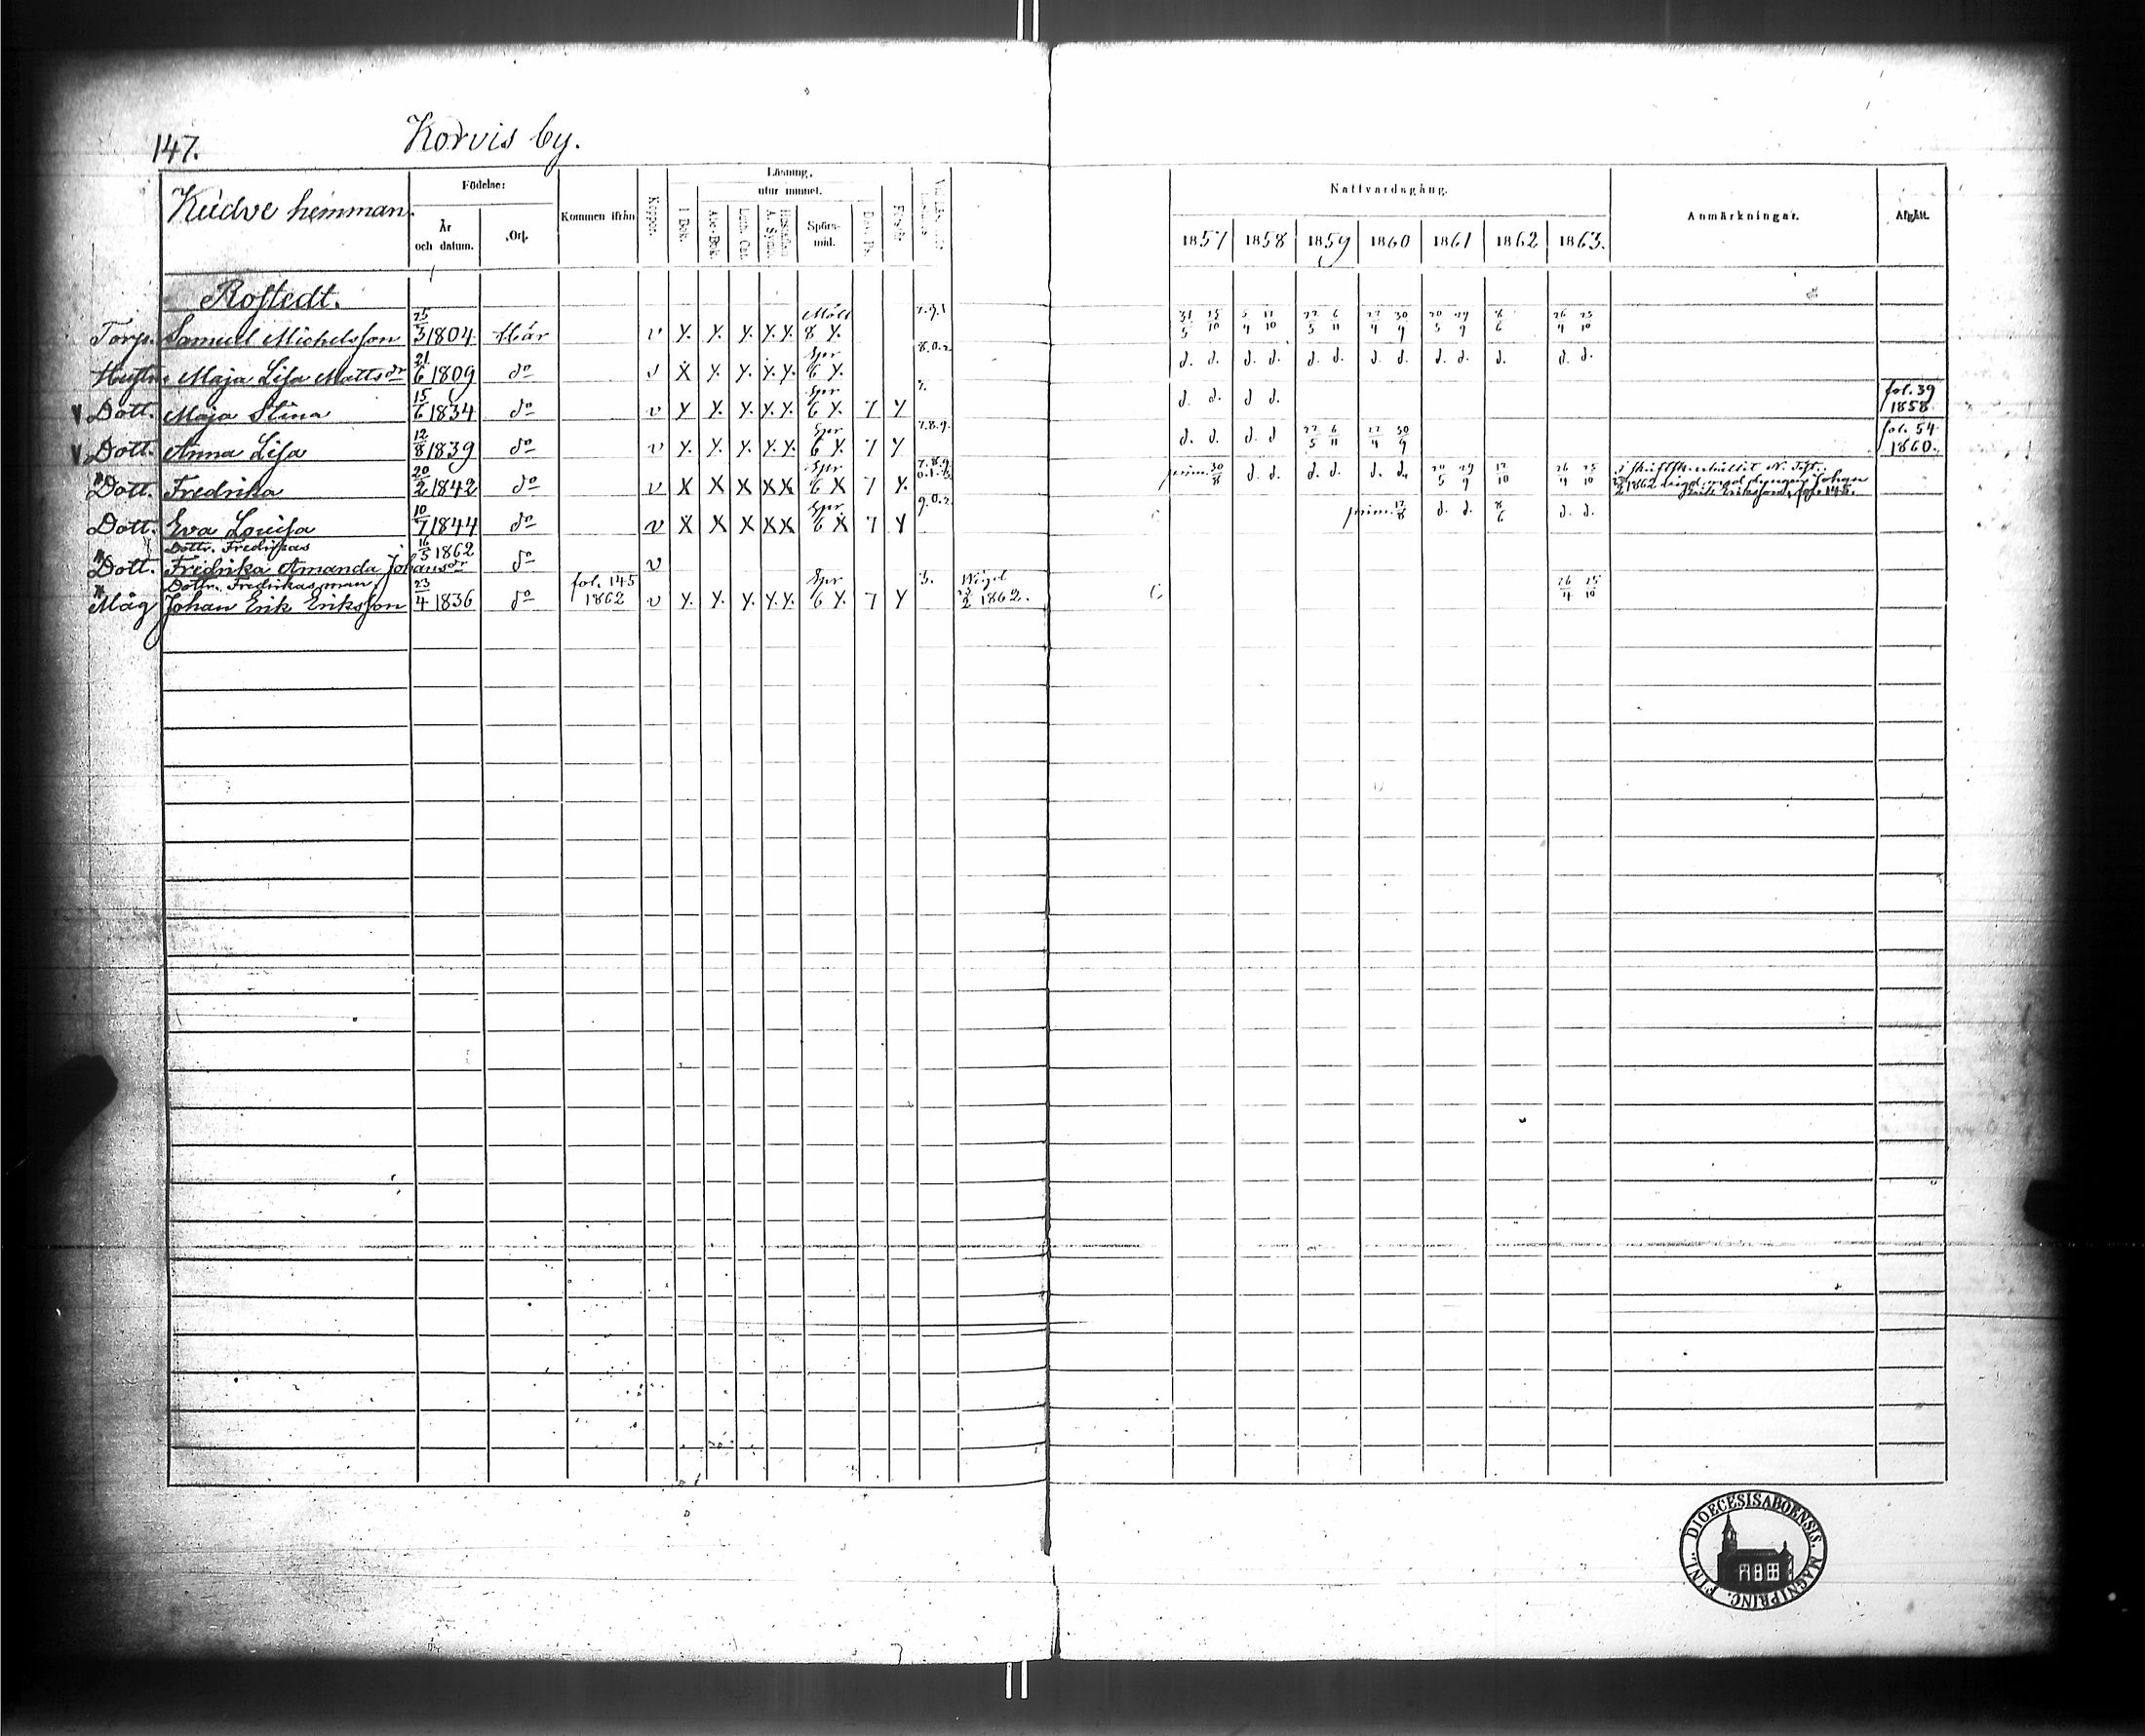 147. Korvis by.
Kudve hemman.
Födelse:
År och datum.
Ort.
Kommen ifrån
Koppor.
Läsning.
utur minnet.
I Bok.
Abc-Bok.
Luth. Cat.
Hustaflan A. Symb.
Spörs-mål.
Dav. Ps.
Förstår
Nattvardsgång.
1857 1858 1859 1860 1861 1862 1863.
Anmärkningar.
Afgått.
Rostedt.
Torp. Samuel Michelsson 25/3 1804 Här v y. y. y. y. y. Mölt 8 y. 7.9.1 31/5 15/10 5/4 11/10 22/5 6/11 22/4 30/9 20/5 29/9 8/6 26/4 25/10
Hustru Maja Lisa Mattsdr 21/6 1809 do v x y. y. y. y. Spr 6 y. 8.0.2 d. d. d. d. d. d. d. d. d. d. d. d. d.
v Dott. Maja Stina 15/6 1834 do v y y. y. y. y. Spr 6 y. 7 y d. d. d. d. fol. 39 1858
v Dott. Anna Lisa 12/8 1839 do v y. y. y. y. y. Spr 6 y. 7 y 7.8.9. d. d. d. d 22/5 6/11 22/4 30/9 fol. 54 1860.
Dott. Fredrika 20/2 1842 do v x x x x x Spr 6 x 7 y. prim. 30/8 d. d. d. d. d. d. 20/5 29/9 12/10 26/4 25/10 N. Test. 1862 vigd med drängen Johan Erik Eriksson, fol. 145.
Dott. Eva Louisa 10/7 1844 do v x x x x x Spr. 6 x 7 y 9.0.2 prim. 12/8 d. d. 8/6 d. d.
Dottr. Fredrikas
Dott. Fredrika Amanda Johansdr 16/5 1862 do v
Dottr. Fredrikas man
Måg Johan Erik Eriksson 23/4 1836 do fol. 145 1862 v y. y. y. y. y. Spr 6 y. 7 y 3. Wigd 23/2 1862. 26/4 25/10
DIOECESIS ABOENSIS. MAGNI PRINC. FINL.